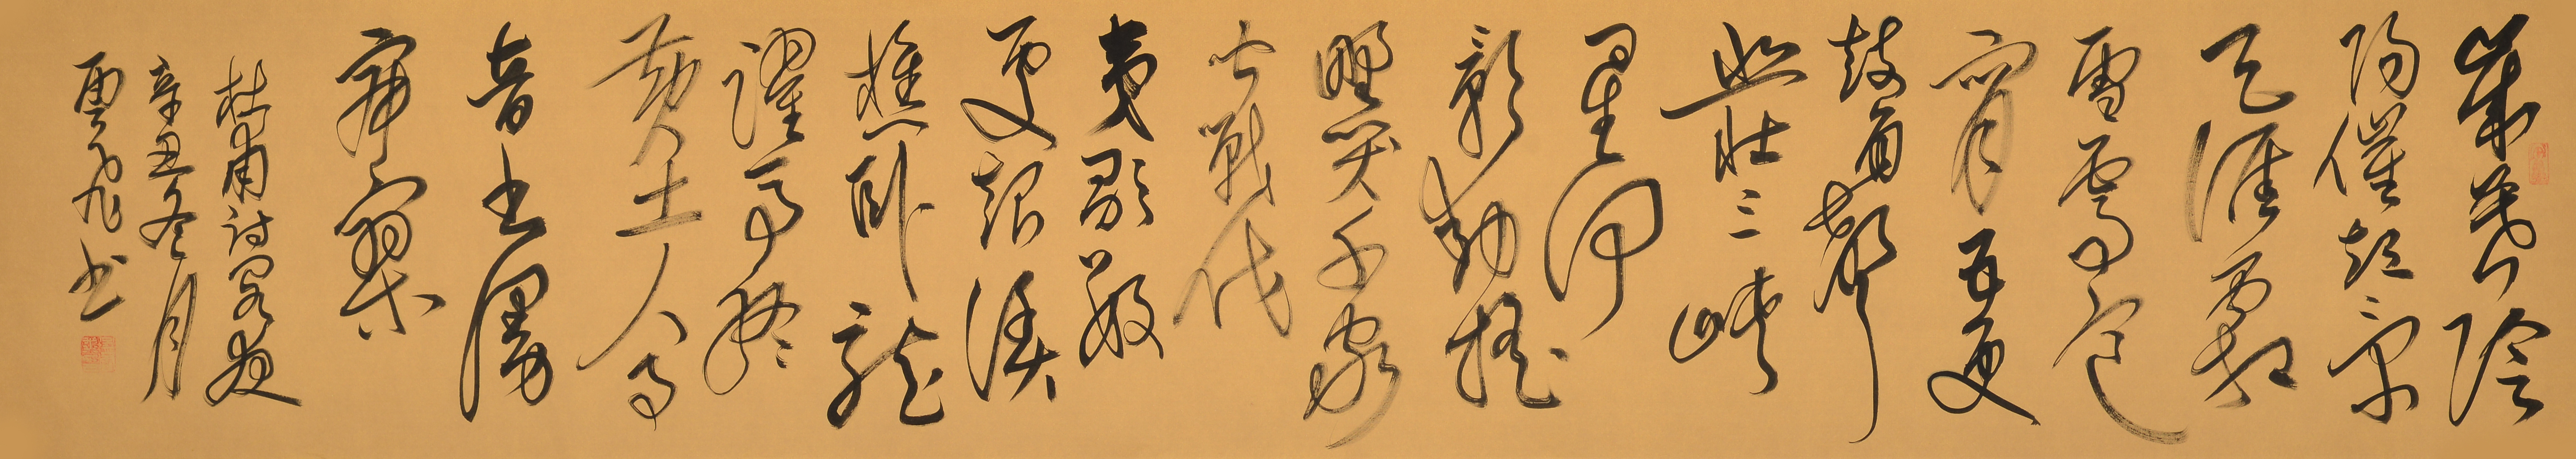 歲暮陰
陽催短景
天涯霜
雪霽寒
宵五更
鼓角聲
悲壯三峽
星河
影動搖
野哭千家
聞戰伐
夷歌數
處起漁
樵臥龍
躍馬終
黃土人事
音書漫
寂寥
杜甫詩閣夜
辛丑冬月
雲飛書